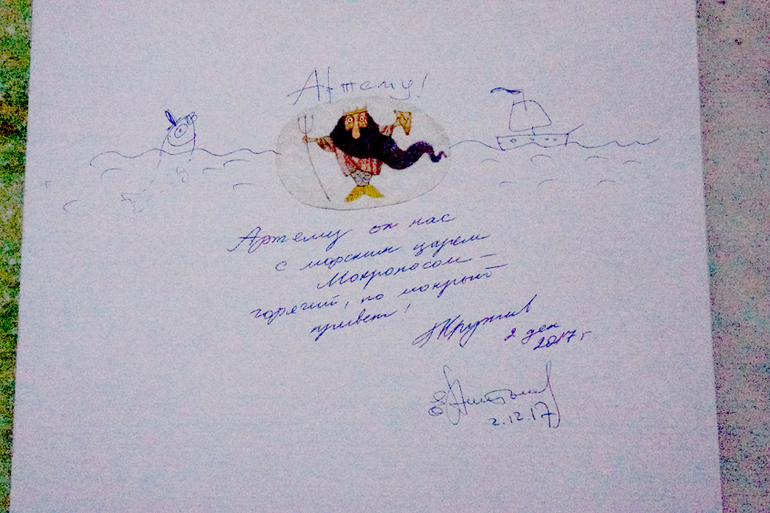 Артему!
Артему от нас
с морским царём
Мокроносом —
горячий, но мокрый
привет!
2 дек
2017 г
2.12.17